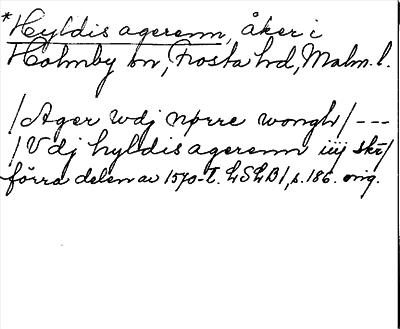 *Hyldis agerenn, åker i
Holmby sn, Frosta hd, Malm. l.
/Ager wdj nørre wongh/ ---
/Vdj hyldis agerenn iiij skr/
förra delen av 1570-t. LSLB1, s. 186. orig.